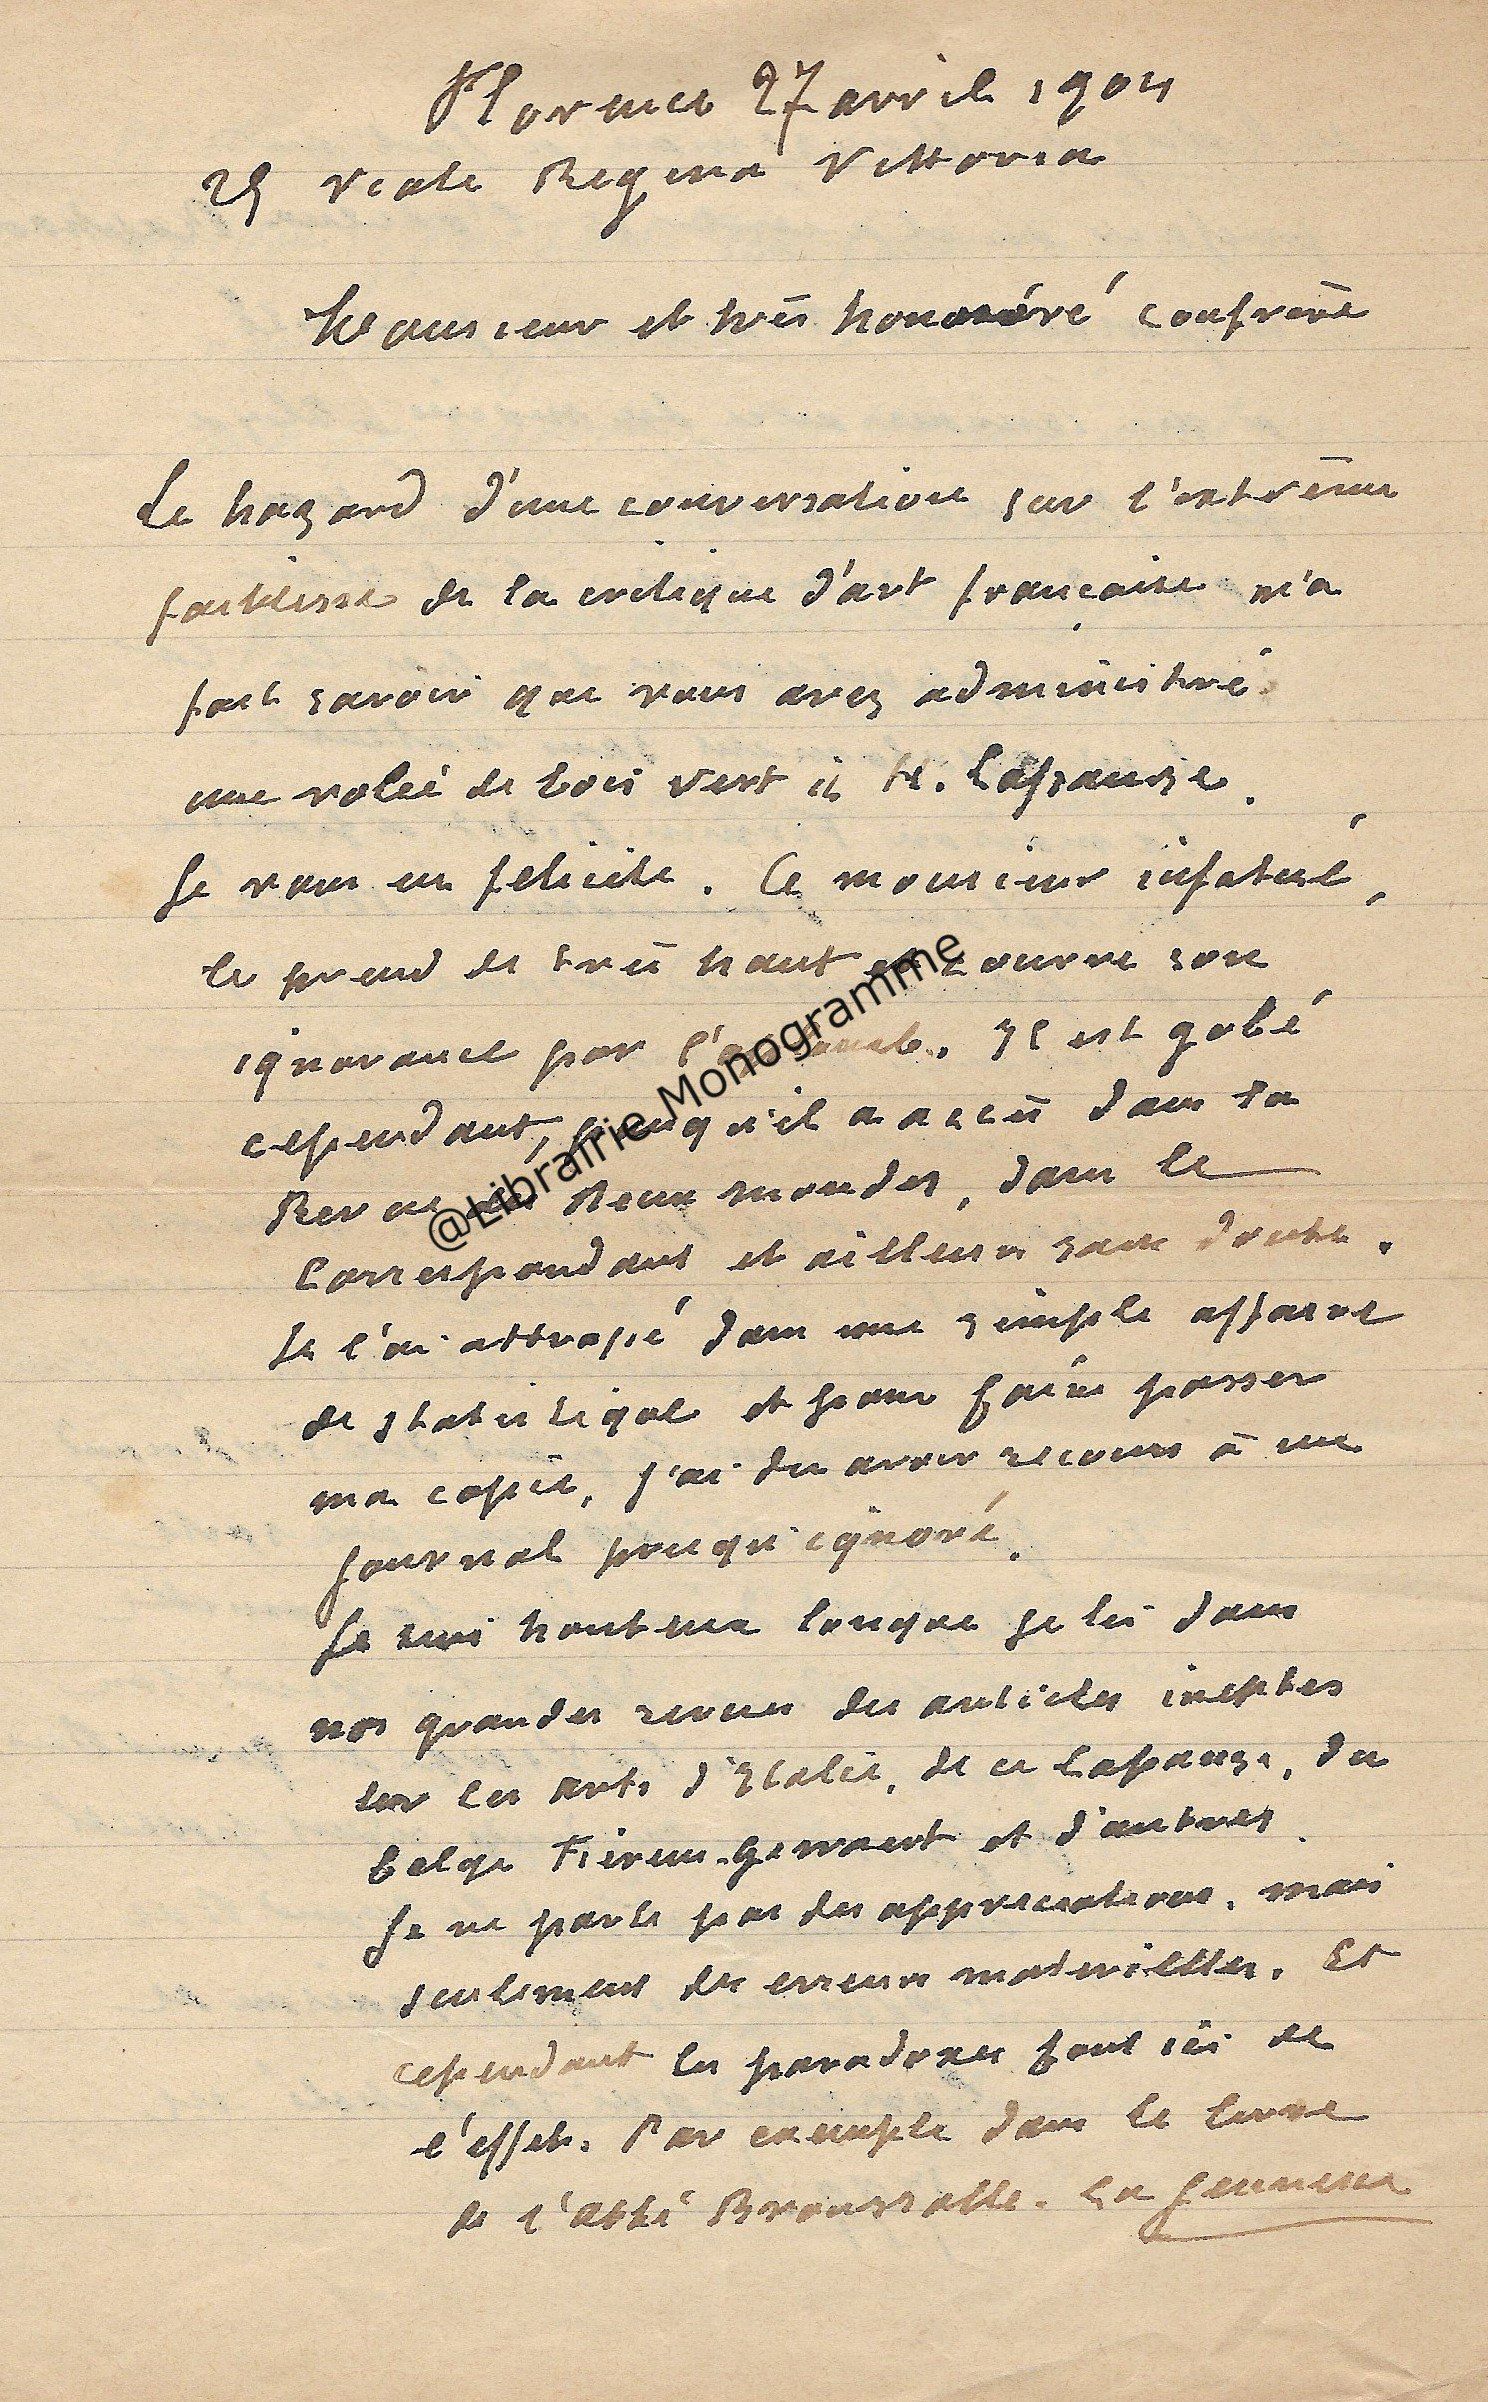 Florence 27 avril 1904
25 Viale Regina Vittoria
Monsieur et très honoré confrère
Le hazard d'une conversation sur l'extrême
faiblesse de la critique d'art française m'a
fait savoir que vous avez administré
une volée de bois vert à H. Lapauze.
Je vous en félicite. Ce monsieur infatué,
le prend de très haut et couvre son
ignorance par l'. Il est gobé
cependant, puisqu'il a accès dans la
Revue des Deux mondes, dans le
Correspondant et ailleurs sans doute.
Je l'ai attrapé dans une simple affaire
de statistique et pour faire passer
ma copie, j'ai du avoir recours à un
journal presqu'ignoré.
Je suis honteux lorsque je lis dans
nos grandes revues des articles ineptes
sur les arts d'Italie, de ce Lapauze, du
belge Fierens-Gevaert et d'autres.
Je ne parle pas des appreciations, mais
seulement des erreurs materielles. Et
cependant les paradoxes font ici de
l'effet. Par exemple dans le livre
de l'abbé Broussolle. La Jeunesse
@Librairie Monogramme